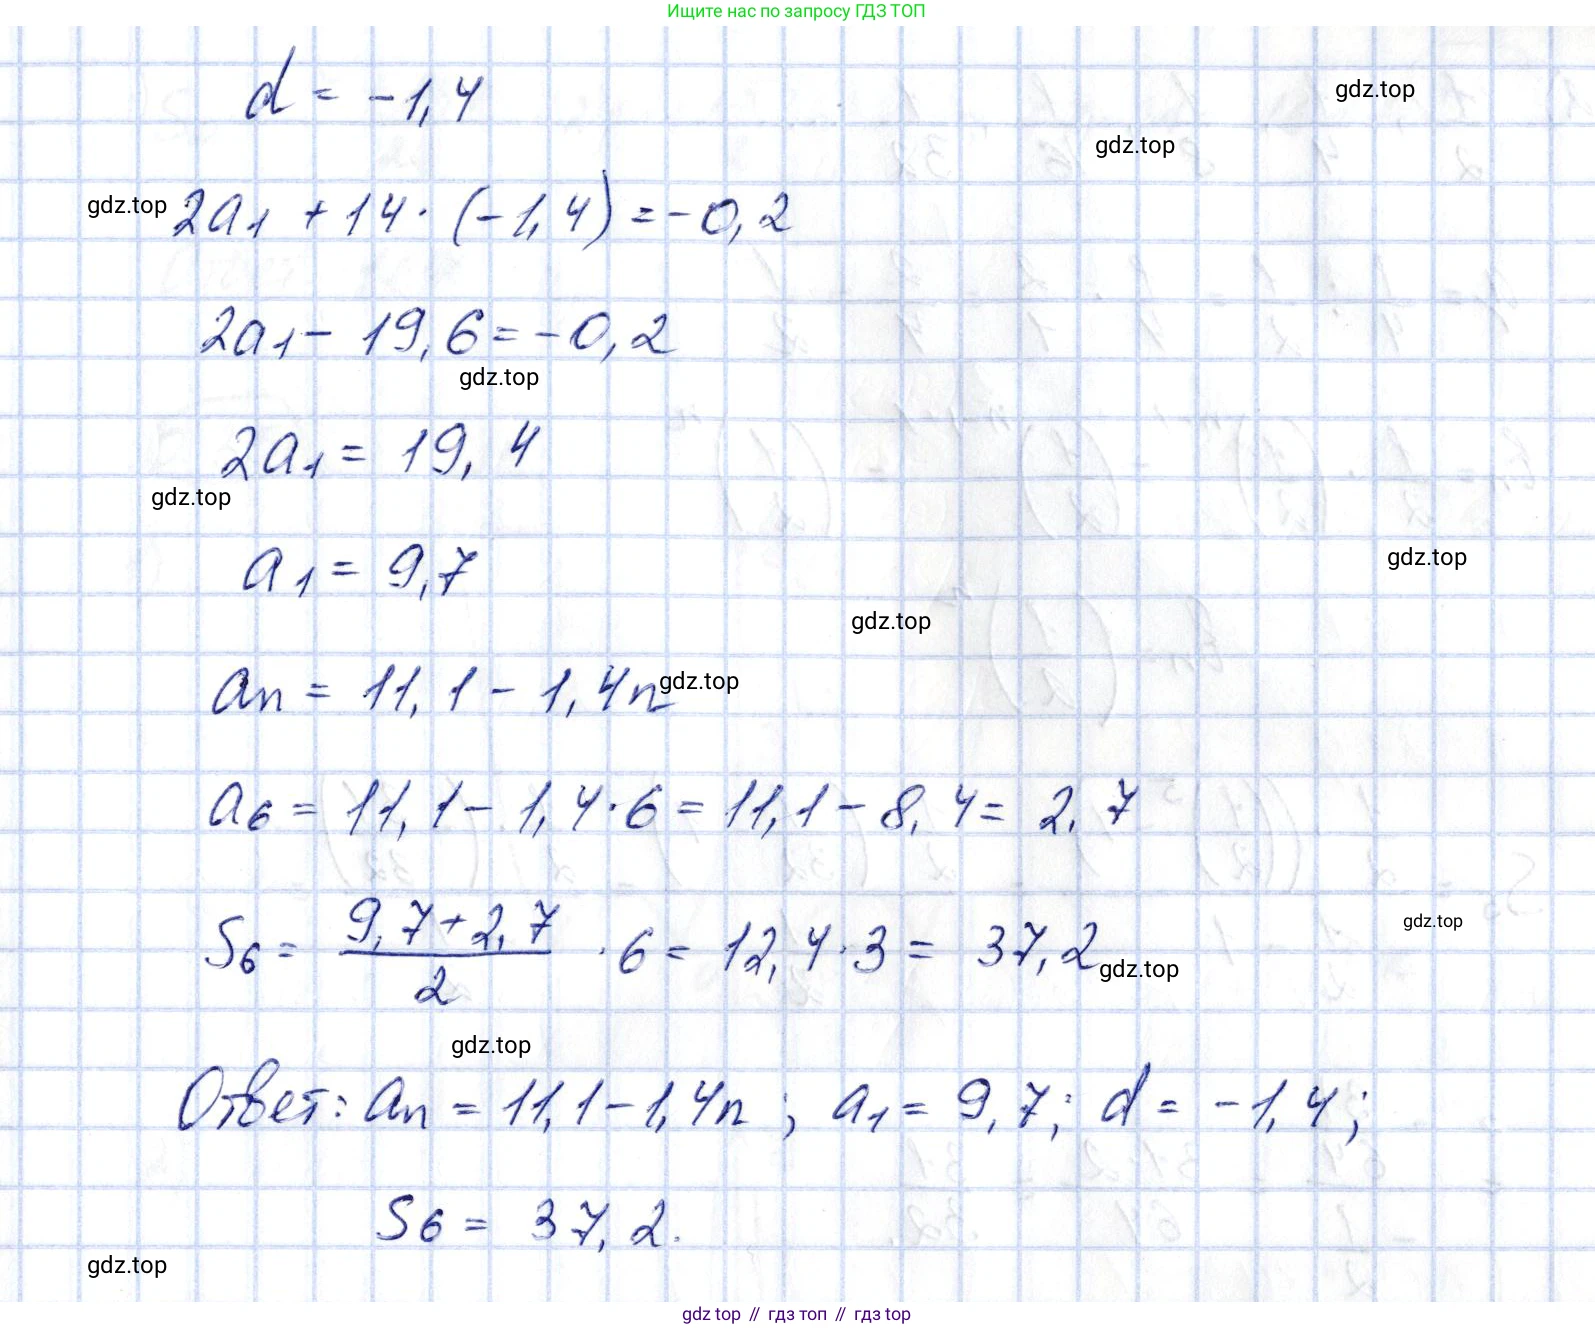 Ищите нас по запросу ГДЗ ТОП
d = -1,4
gdz.top
gdz.top
gdz.top
2a₁ + 14 · (-1,4) = -0,2
2a₁ - 19,6 = -0,2
gdz.top
2a₁ = 19,4
gdz.top
a₁ = 9,7
gdz.top
gdz.top
aₙ = 11,1 - 1,4n
gdz.top
a₆ = 11,1 - 1,4·6 = 11,1 - 8,4 = 2,7
S₆ = (9,7+2,7)/2 · 6 = 12,4·3 = 37,2
gdz.top
gdz.top
gdz.top
Ответ: aₙ = 11,1 - 1,4n ; a₁ = 9,7; d = -1,4;
S₆ = 37,2.
gdz.top
gdz top // гдз топ // гдз top